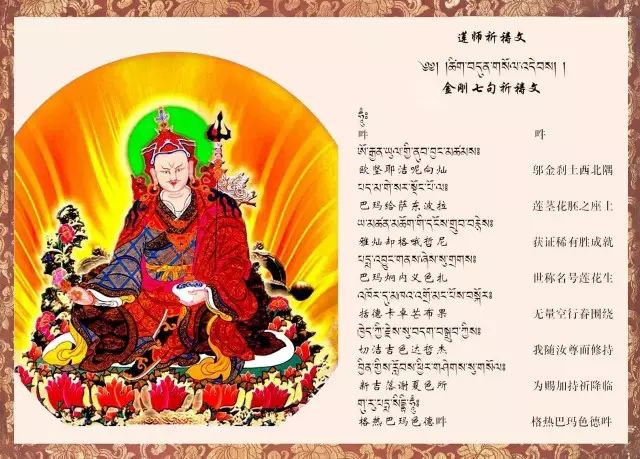 莲师祈祷文
༄༅། །ཚིག་བདུན་གསོལ་འདེབས། །
金刚七句祈祷文
ཧཱུྃ༔
吽 吽
ཨོ་རྒྱན་ཡུལ་གྱི་ནུབ་བྱང་མཚམས༔
欧坚耶洁呢向灿 邬金刹土西北隅
པད་མ་གེ་སར་སྡོང་པོ་ལ༔
巴玛给萨东波拉 莲茎花胚之座上
ཡ་མཚན་མཆོག་གི་དངོས་གྲུབ་བརྙེས༔
雅灿却格哦哲尼 获证稀有胜成就
པདྨ་འབྱུང་གནས་ཞེས་སུ་གྲགས༔
巴玛炯内义色扎 世称名号莲花生
འཁོར་དུ་མཁའ་འགྲོ་མང་པོས་བསྐོར༔
括德卡卓芒布果 无量空行眷围绕
ཁྱེད་ཀྱི་རྗེས་སུ་བདག་བསྒྲུབ་ཀྱིས༔
切洁吉色达哲杰 我随汝尊而修持
བྱིན་གྱིས་རློབས་ཕྱིར་གཤེགས་སུ་གསོལ༔
新吉落谢夏色所 为赐加持祈降临
གུ་རུ་པདྨ་སིདྡྷི་ཧཱུྃ༔
格热巴玛色德吽 格热巴玛色德吽